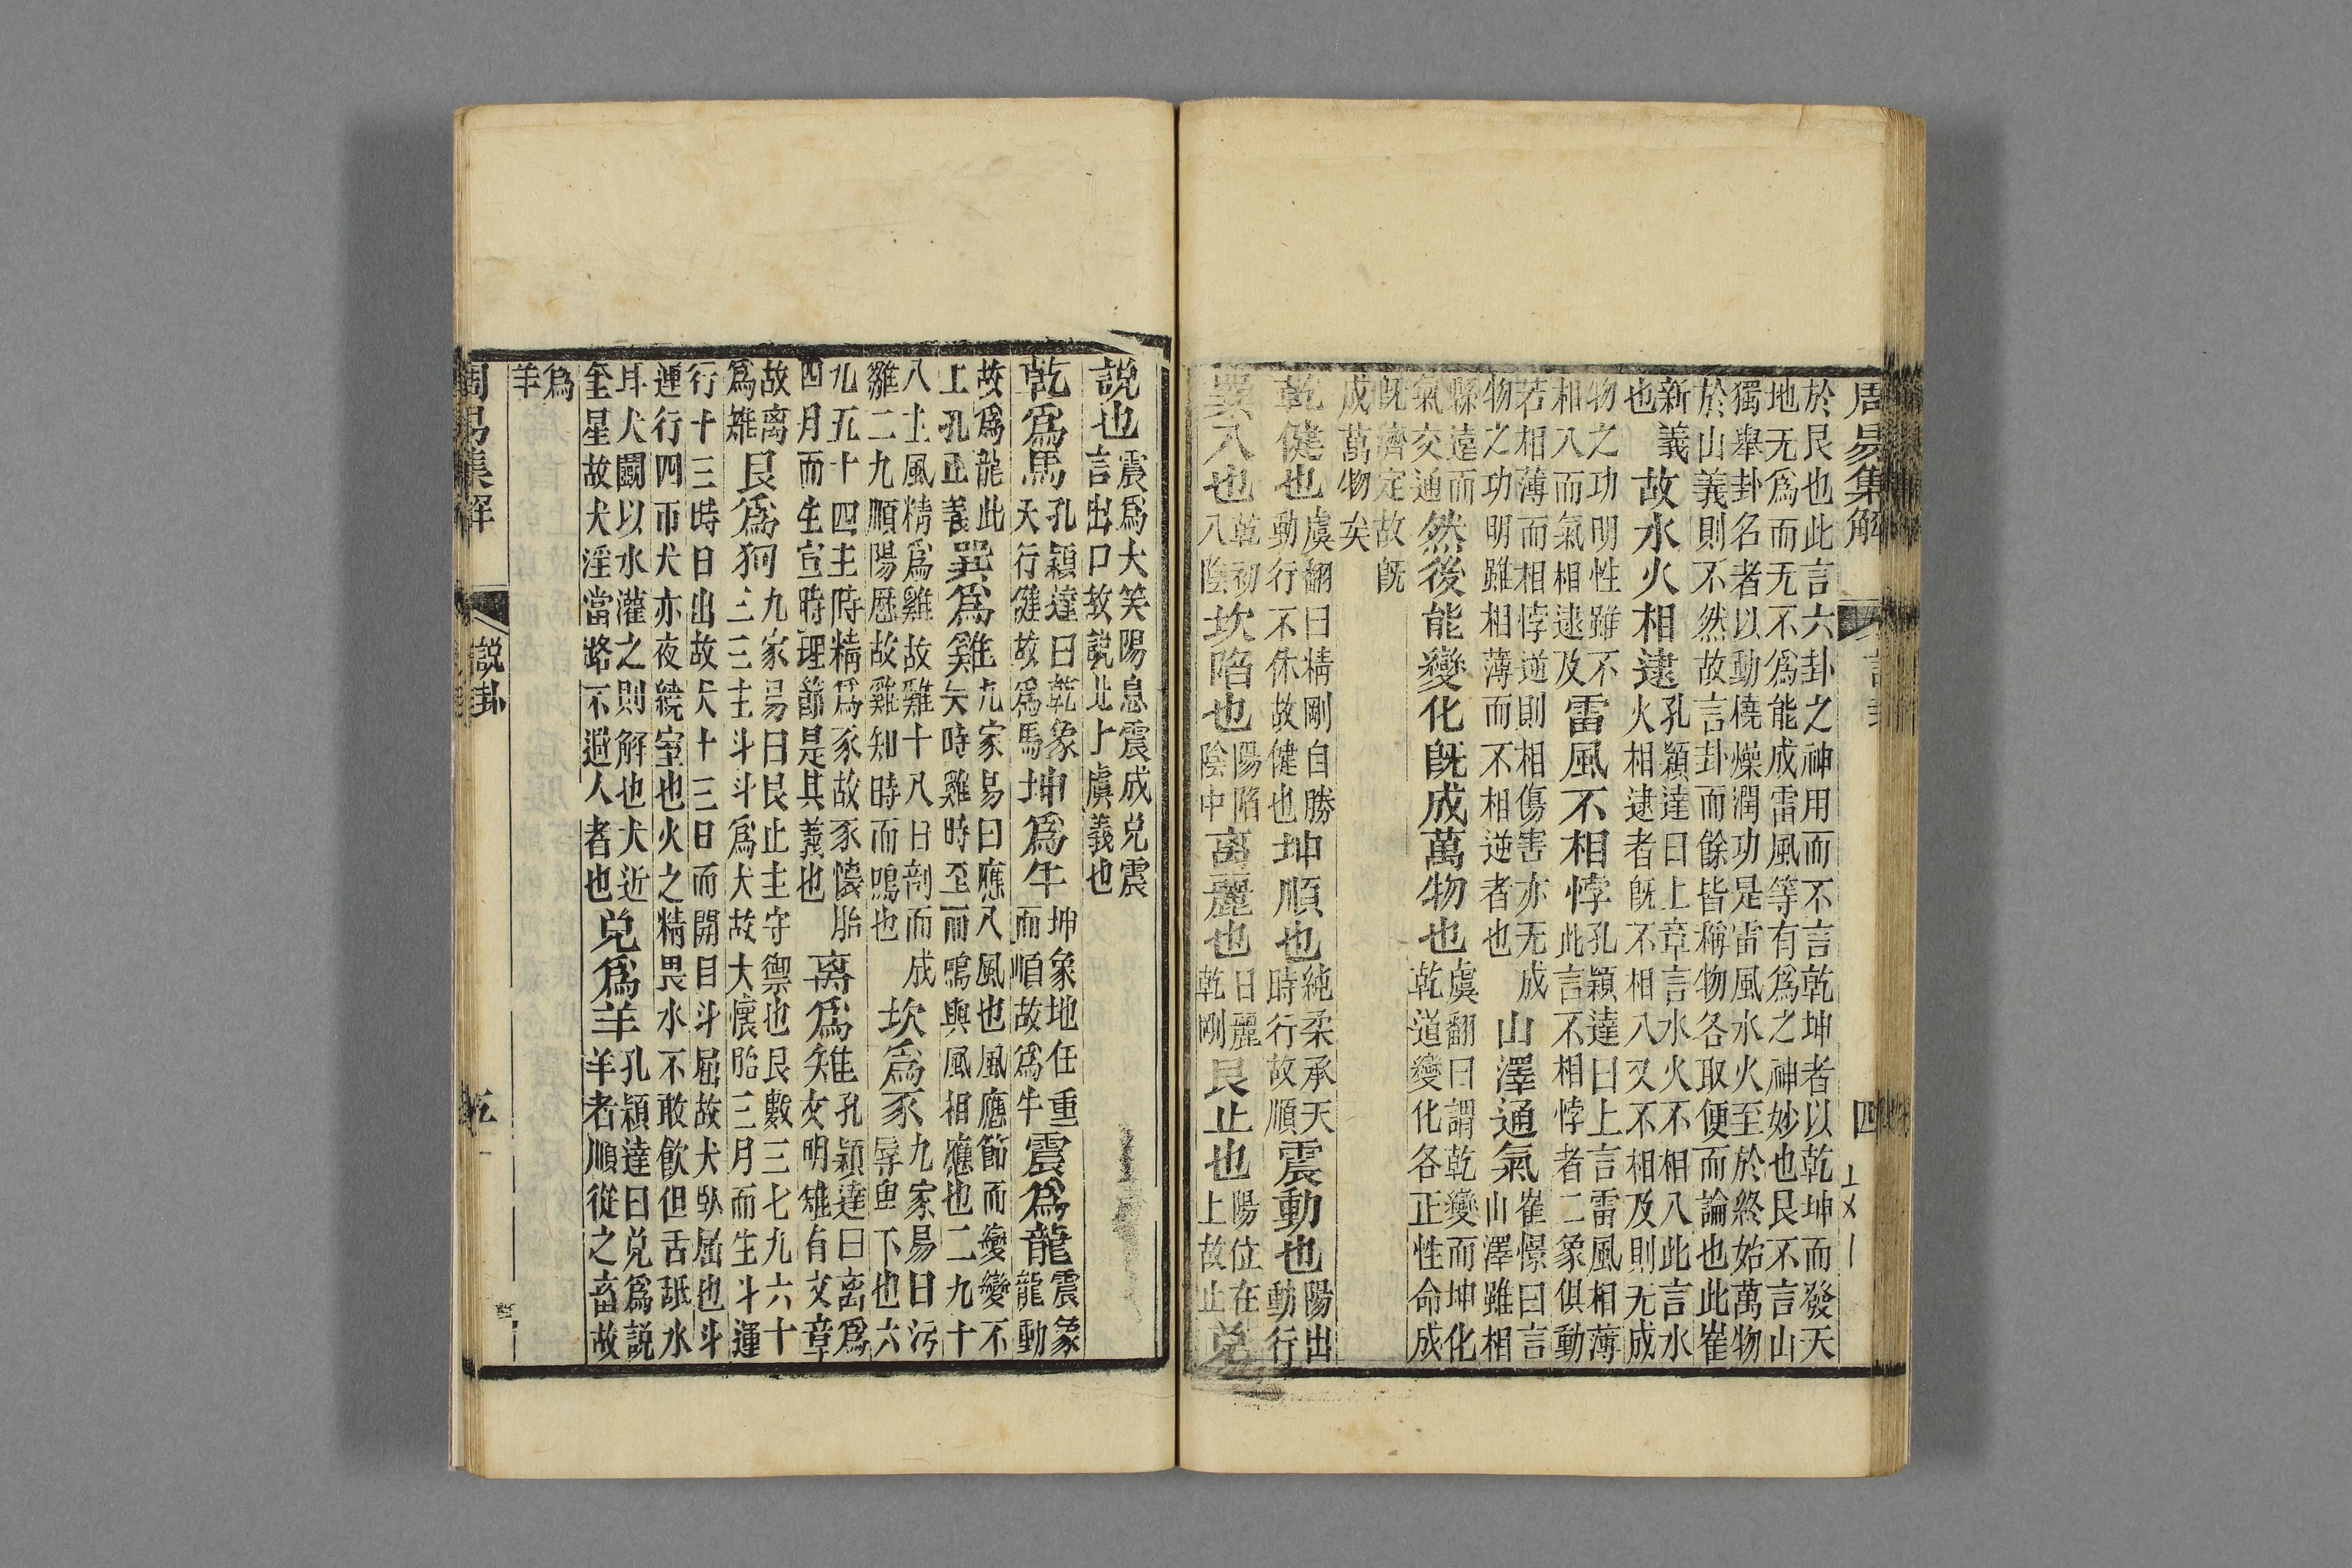 周易集解　說卦　四
於艮也此言六卦之神用而不言乾坤者以乾坤而發天
地无爲而无不爲能成雷風等有爲之神妙也艮不言山
獨舉卦名者以動橈燥潤功是雷風水火至於終始萬物
於山義則不然故言卦而餘皆稱物各取便而論也此崔
新義也　故水火相逮　孔穎達曰上章言水火不相入此言水火相逮者旣不相入又不相及則无成
物之功明性雖不相入而氣相逮及　雷風不相悖　孔穎達曰上言雷風相薄此言不相悖者二象俱動
若相薄而相悖逆則相傷害亦无成物之功明雖相薄而不相逆者也　山澤通氣　崔憬曰言山澤雖相
縣遠而氣交通　然後能變化旣成萬物也　虞翻曰謂乾變而坤化乾道變化各正性命成
旣濟定故旣成萬物矣
乾健也　虞翻曰精剛自勝動行不休故健也　坤順也　純柔承天時行故順　震動也　陽出動行
巽入也　乾初入陰　坎陷也　陽陷陰中　离麗也　日麗乾剛　艮止也　陽位在上故止　兌
說也　震爲大笑陽息震成兌震言出口故說此上虞義也
乾爲馬　孔穎達曰乾象天行健故爲馬　坤爲牛　坤象地任重而順故爲牛　震爲龍　震象龍動
故爲龍此上孔正義　巽爲雞　九家易曰應八風也風應節而變變不失時雞時至而鳴與風相應也二九十
八主風精爲雞故雞十八日剖而成雛二九順陽歷故雞知時而鳴也　坎爲豕　九家易曰污辱卑下也六
九五十四主時精爲豕故豕懷胎四月而生宣時理節是其義也　离爲雉　孔穎達曰离爲文明雉有文章
故离爲雉　艮爲狗　九家易曰艮止主守禦也艮數三七九六十三三主斗斗爲犬故犬懷胎三月而生斗運
行十三時日出故犬十三日而開目斗屈故犬臥屈也斗
運行四帀犬亦夜繞室也火之精畏水不敢飲但舌舐水
耳犬鬬以水灌之則解也犬近奎星故犬淫當路不避人者也　兌爲羊　孔穎達曰兌爲說羊者順從之畜故
爲羊
周易集解　說卦　五